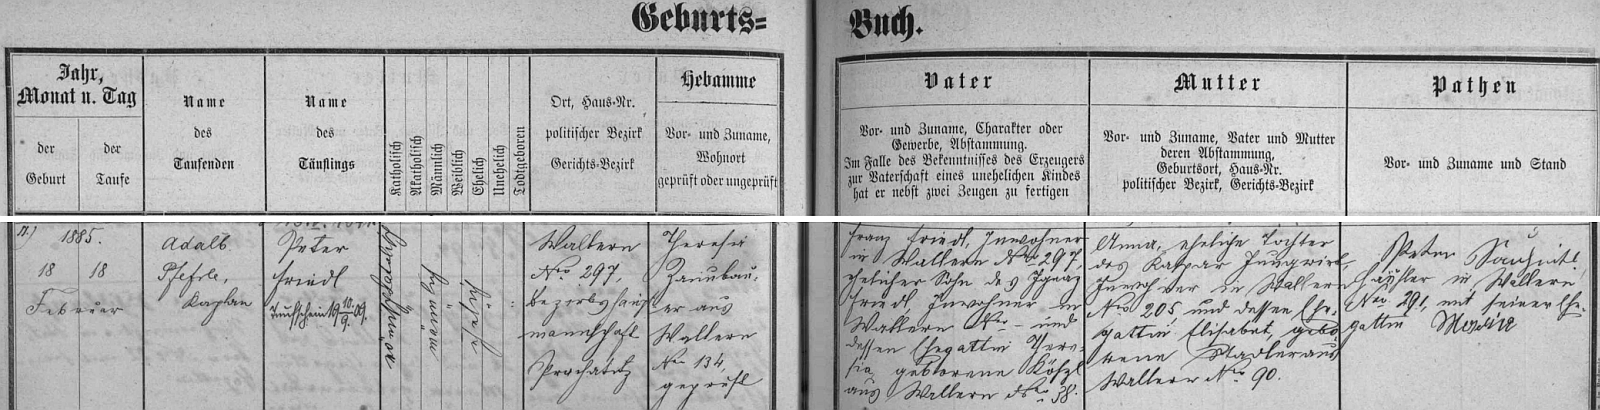 Geburts=
Buch.
Jahr,
Monat u. Tag
der
Geburt
der
Taufe
Name
des
Taufenden
Name
des
Täuflings
Katholisch
Akatholisch
Männlich
Weiblich
Ehelich
Unehelich
Todtgeboren
Ort, Haus-Nr.
politischer Bezirk
Gerichts-Bezirk
Hebamme
Vor- und Zuname,
Wohnort
geprüft oder ungeprüft
Vater
Vor- und Zuname, Charakter oder
Gewerbe, Abstammung.
Im Falle des Bekenntnisses des Erzeugers
zur Vaterschaft eines unehelichen Kindes
hat er nebst zwei Zeugen zu fertigen
Mutter
Vor- und Zuname, Vater und Mutter
deren Abstammung,
Geburtsort, Haus-Nr.
politischer Bezirk, Gerichts-Bezirk
Pathen
Vor- und Zuname und Stand
1885.
18 18
Februer
Adalb.
Kaplan
Peter
Friedl
Taufschein
Wallern
Nro 297,
Bezirkshaupt
mannschaft
Prachatitz
Theresia
er aus
Wallern
Nro 134,
geprüft
Franz Friedl, Inwohner
in Wallern Nro 297,
ehelicher Sohn des Ignaz
Friedl Inwohner in
Wallern Nro - und
dessen Ehegattin There-
sia geborene
aus Wallern Nro 38.
Anna, eheliche Tochter
des Kaspar
Inwohner in Wallern
Nro 205 und dessen Ehe-
gattin Elisabet, gebo-
rene Stadler aus
Wallern Nro 90.
Peter
Häusler in Wallern
Nro 291, mit seiner Ehe-
gattin